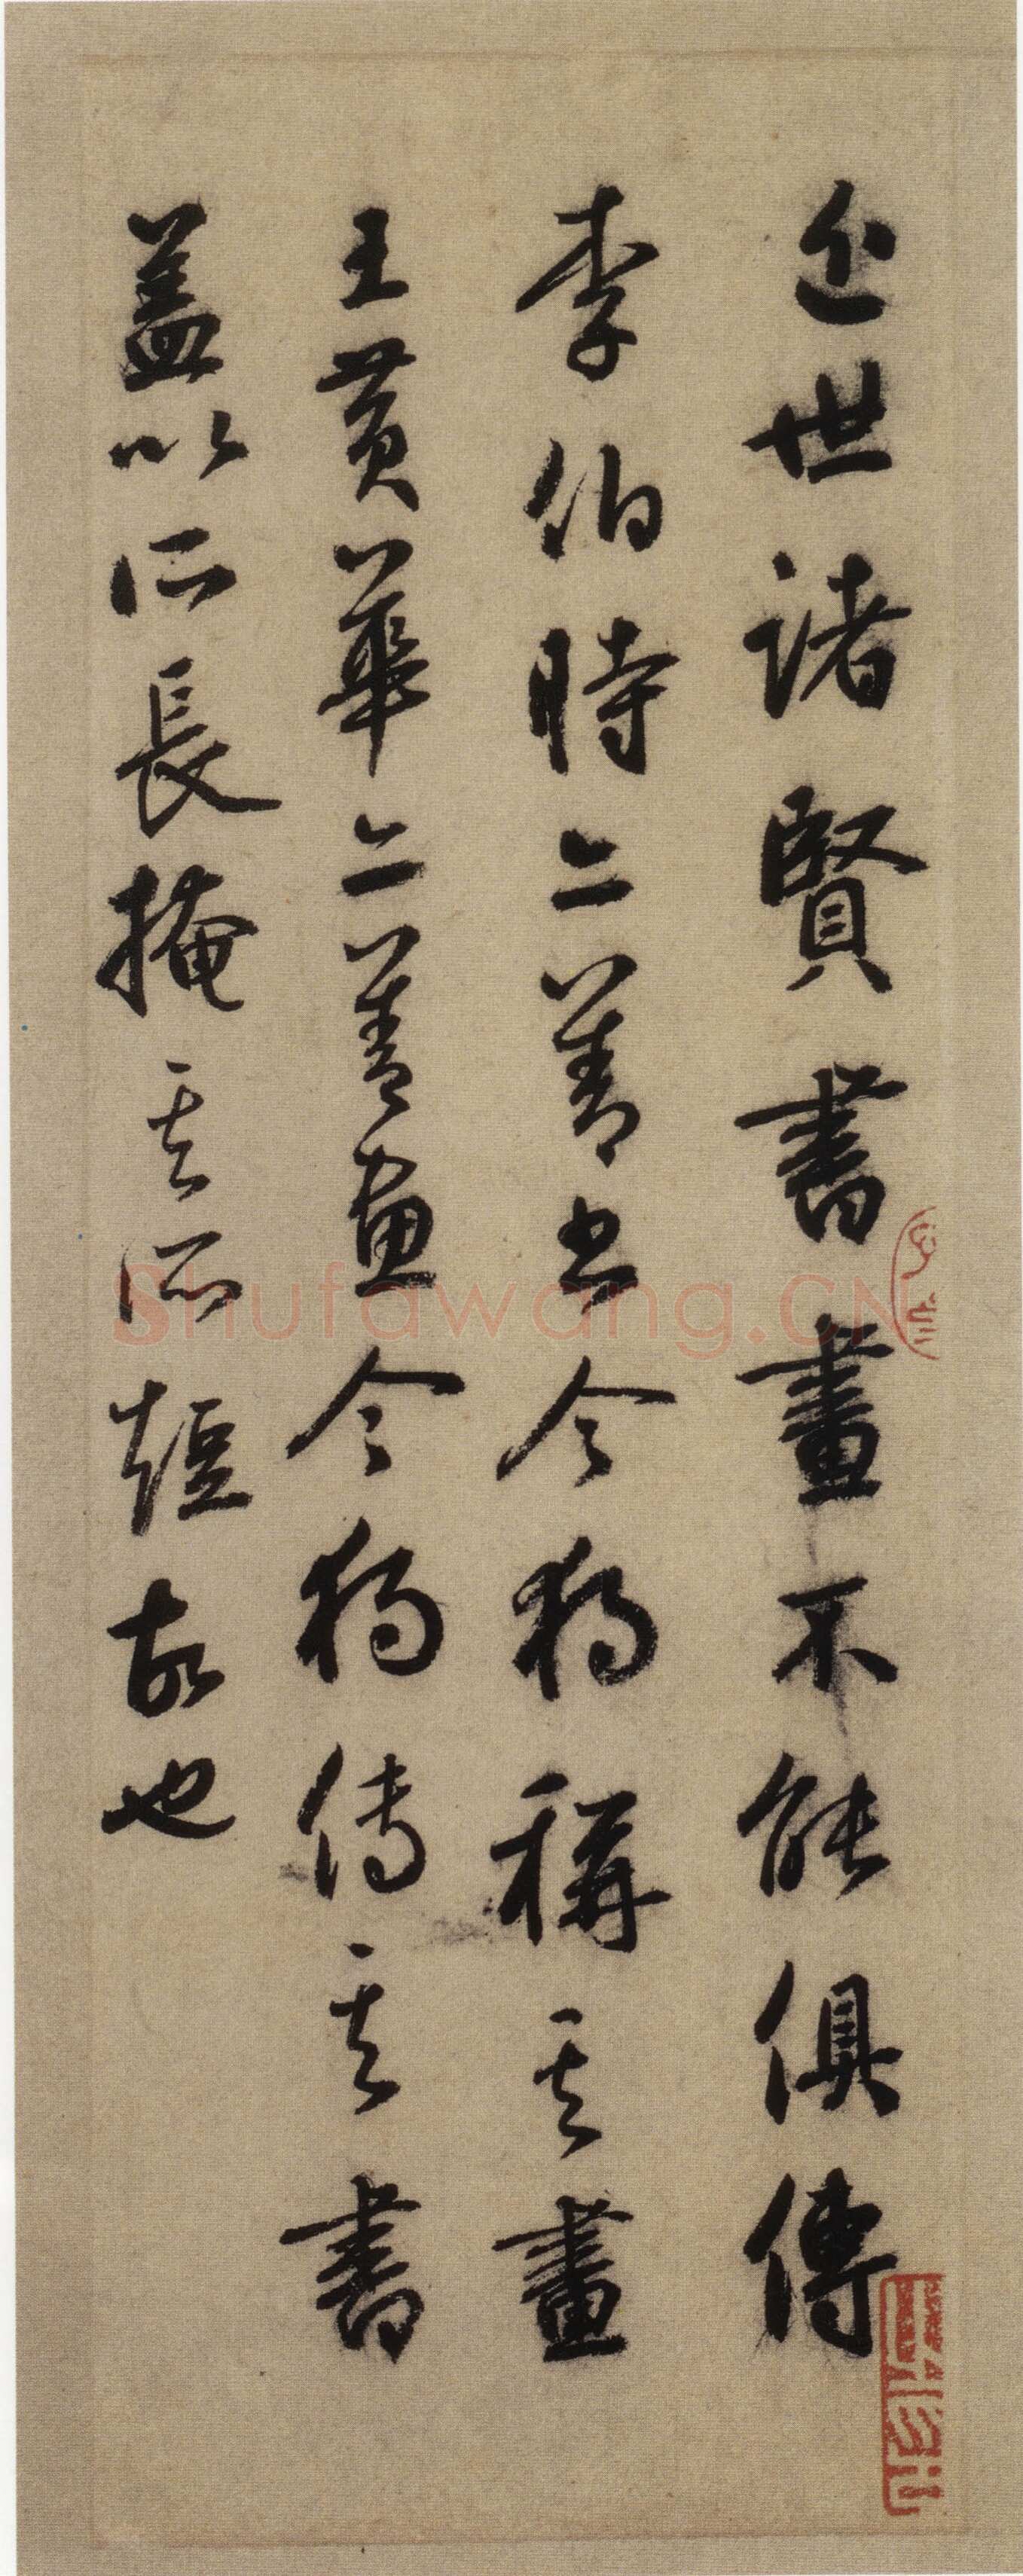 近世諸賢書畫不能俱傳
李伯時亦善书今獨稱其畫
王黄華亦善畫今獨傳其書
蓋以所長掩其所短故也
Shufawang.CN